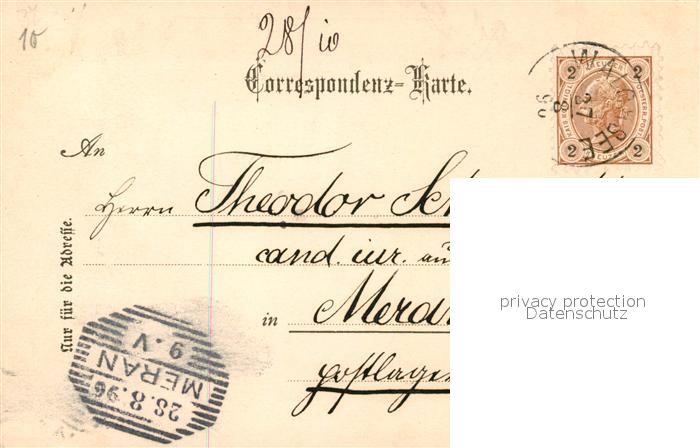 10
28/10
Correspondenz-Karte.
2 2
2 2
27 8 96
An
Herrn Theodor Sch
cand. iur. au
in Meran
postlager
Nur für die Adresse.
MERAN
28.8.96
9.V
privacy protection
Datenschutz